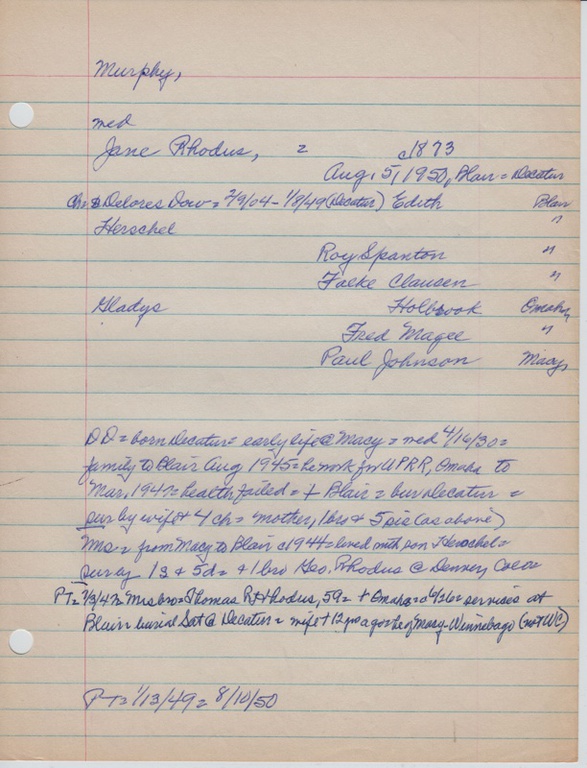 Murphy,
med
Jane Rhodus, = c1873
Aug. 5, 1950, Blair = Decatur
ch = Delores Dow = 2/9/04 - 1/8/49 (Decatur) Edith Blair
Herschel "
Roy Spanton "
Falke Clausen "
Gladys Holbrook Omaha,
Fred Magee "
Paul Johnson Macy,
DD = born Decatur = early life @ Macy = med 4/16/30 =
family to Blair Aug 1945 = he work for UPRR, Omaha to
Mar, 1947 = health failed = + Blair = bur Decatur =
sur by wife + 4 ch = mother, 1 bro & 5 sis (as above)
Mrs = from Macy to Blair c1944 = lived with son Herschel =
sur by 1s + 5d = + 1 bro Geo. Rhodus @ Denver, Colo =
PT = 7/3/47 = Mrs bro = Thomas R Rhodus, 59 = + Omaha = 6/26 = services at
Blair burial Sat @ Decatur = wife + 12 yrs ago = he of Macy - Winnebago (not WC)
PT = 1/13/49 = 8/10/50